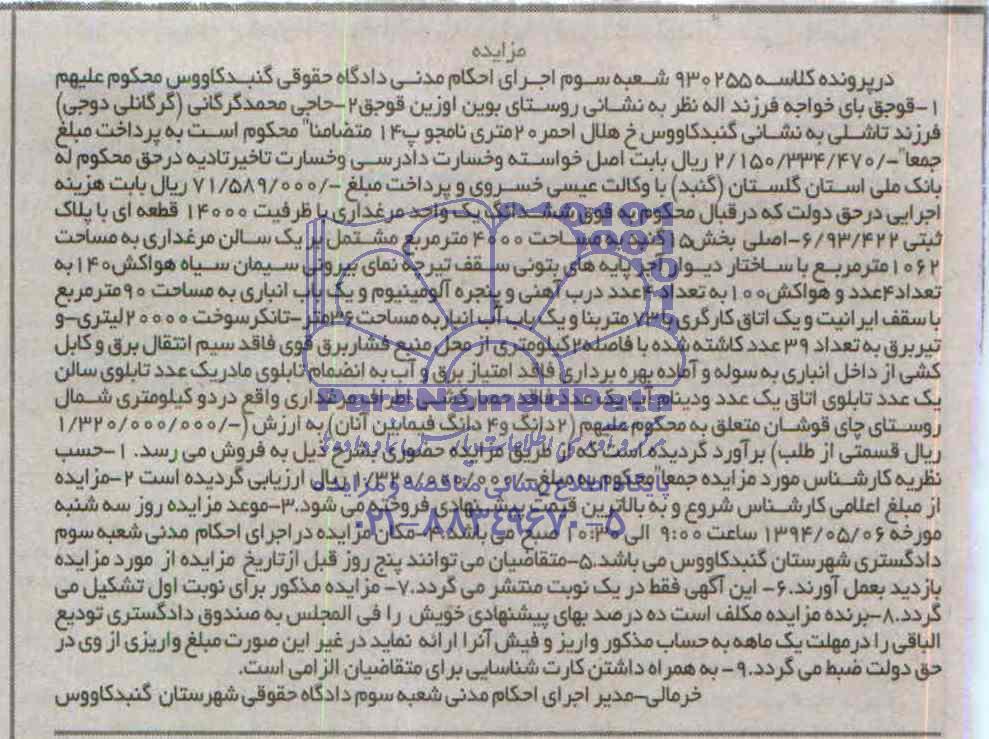 مزایده
درپرونده کلاسه ۹۳۰۲۵۵ شعبه سوم اجرای احکام مدنی دادگاه حقوقی گنبدکاووس محکوم علیهم
۱-قوجق بای خواجه فرزند اله نظر به نشانی روستای بوین اوزین قوجق۲-حاجی محمدگرگانی (گرگانلی دوجی)
فرزند تاشلی به نشانی گنبدکاووس خ هلال احمر۲۰متری نامجو پ۱۴ متضامنا" محکوم است به پرداخت مبلغ
جمعا"-/۲/۱۵۰/۳۳۴/۴۷۰ ریال بابت اصل خواسته وخسارت دادرسی وخسارت تاخیرتادیه درحق محکوم له
بانک ملی استان گلستان (گنبد) با وکالت عیسی خسروی و پرداخت مبلغ -/۷۱/۵۸۹/۰۰۰ ریال بابت هزینه
اجرایی درحق دولت که درقبال محکوم به فوق ششدانگ یک واحد مرغداری با ظرفیت ۱۴۰۰۰ قطعه ای با پلاک
ثبتی ۶/۹۳/۴۲۲-اصلی بخش۱۵گنبد به مساحت ۴۰۰۰ مترمربع مشتمل بر یک سالن مرغداری به مساحت
۱۰۶۲مترمربع با ساختار دیوار آجر پایه های بتونی سقف تیرچه نمای بیرونی سیمان سیاه هواکش۱۴۰به
تعداد۴عدد و هواکش۱۰۰به تعداد۴عدد درب آهنی و پنجره آلومینیوم و یک باب انباری به مساحت ۹۰مترمربع
با سقف ایرانیت و یک اتاق کارگری با۷۲ متربنا و یک باب آب انباربه مساحت۳۶متر-تانکرسوخت ۲۰۰۰۰لیتری-و
تیربرق به تعداد ۳۹ عدد کاشته شده با فاصله۲کیلومتری از محل منبع فشاربرق قوی فاقد سیم انتقال برق و کابل
کشی از داخل انباری به سوله و آماده بهره برداری فاقد امتیاز برق و آب به انضمام تابلوی مادریک عدد تابلوی سالن
یک عدد تابلوی اتاق یک عدد ودینام آب یک عدد فاقد حصارکشی اطراف مرغداری واقع دردو کیلومتری شمال
روستای چای قوشان متعلق به محکوم علیهم (۲دانگ و۴ دانگ فیمابین آنان) به ارزش (-/۱/۳۲۰/۰۰۰/۰۰۰
ریال قسمتی از طلب) برآورد گردیده است که از طریق مزایده حضوری بشرح ذیل به فروش می رسد. ۱-حسب
نظریه کارشناس مورد مزایده جمعا"محکوم به مبلغ-/۱/۳۲۰/۰۰۰/۰۰۰ ریال ارزیابی گردیده است ۲-مزایده
از مبلغ اعلامی کارشناس شروع و به بالاترین قیمت پیشنهادی فروخته می شود.۳-موعد مزایده روز سه شنبه
مورخه ۱۳۹۴/۰۵/۰۶ ساعت ۹:۰۰ الی ۱۰:۳۰ صبح می باشد.۴-مکان مزایده در اجرای احکام مدنی شعبه سوم
دادگستری شهرستان گنبدکاووس می باشد.۵-متقاضیان می توانند پنج روز قبل ازتاریخ مزایده از مورد مزایده
بازدید بعمل آورند.۶- این آگهی فقط در یک نوبت منتشر می گردد.۷- مزایده مذکور برای نوبت اول تشکیل می
گردد.۸-برنده مزایده مکلف است ده درصد بهای پیشنهادی خویش را فی المجلس به صندوق دادگستری تودیع
الباقی را درمهلت یک ماهه به حساب مذکور واریز و فیش آنرا ارائه نماید در غیر این صورت مبلغ واریزی از وی در
حق دولت ضبط می گردد.۹- به همراه داشتن کارت شناسایی برای متقاضیان الزامی است.
خرمالی-مدیر اجرای احکام مدنی شعبه سوم دادگاه حقوقی شهرستان گنبدکاووس
ParsNamadData
پایگاه اطلاع رسانی مناقصه و مزایده
۰۲۱-۸۸۳۴۹۶۷۰-۵